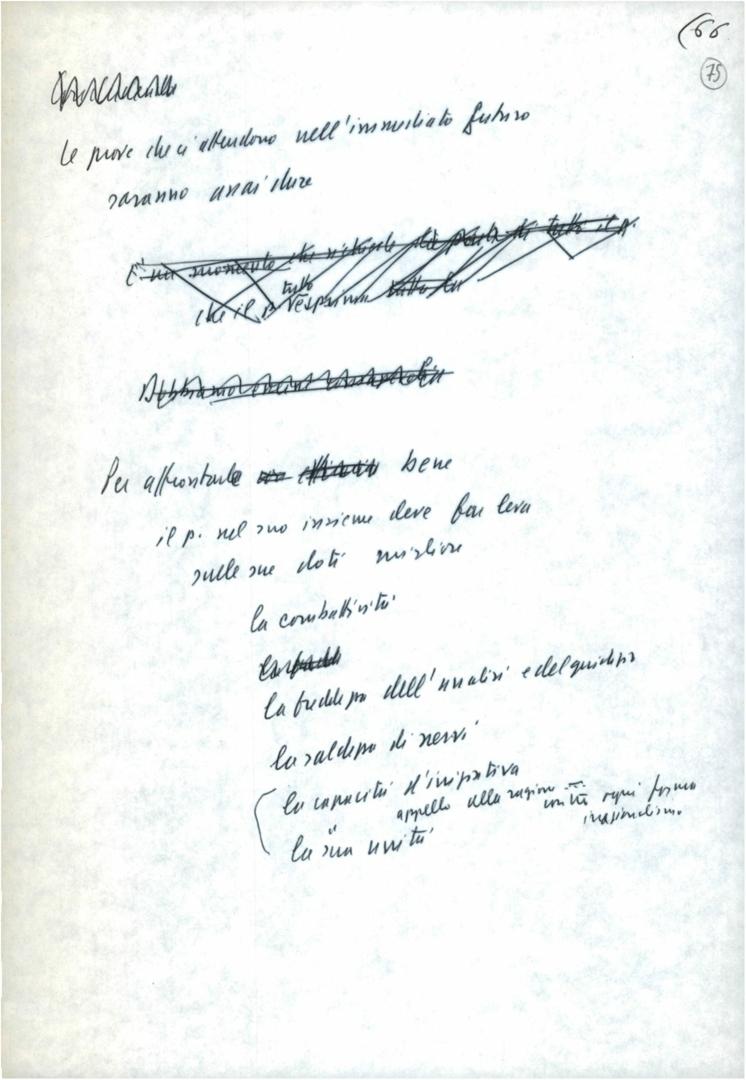 (66
75
Le prove che ci attendono nell'immediato futuro
saranno assai dure
È un momento che richiede da parte di tutto il p.
tutto
che il p. esprima
Debbiamo
Per affrontarle bene
il p. nel suo insieme deve far leva
sulle sue doti migliori
la combattività
la freddezza dell'analisi e del giudizio
la saldezza di nervi
la capacità d'iniziativa
appello alla ragione contro ogni forma
irrazionalismo
la sua unità